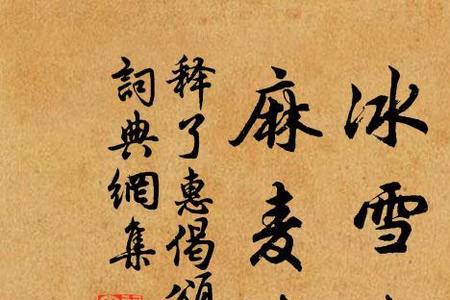 冰雪
麻麦
释了惠偈颂
詞典網集